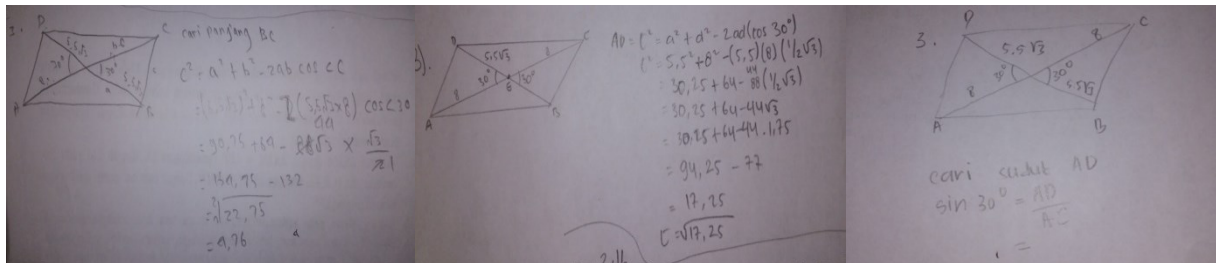 1.
D
C
5,5√3
8
30°
30°
8
5,5√3
A
B
cari panjang BC
c² = a² + b² - 2ab cos <C
= 154,75 - 132
= √22,75
= 4,76
3).
D
C
5,5√3
8
30°
30°
8
A
B
AD = C² = a² + d² - 2ad (cos 30°)
C² = 5,5² + 8² - (5,5)(8)(½√3)
= 30,25 + 64 - 88 (½√3)
44
= 30,25 + 64 - 44√3
= 30,25 + 64 - 44 . 1,75
= 94,25 - 77
= 17,25
C = √17,25
3.
D
C
5,5√3
8
30°
30°
8
5,5√3
A
B
cari sudut AD
sin 30° = AD
AC
=